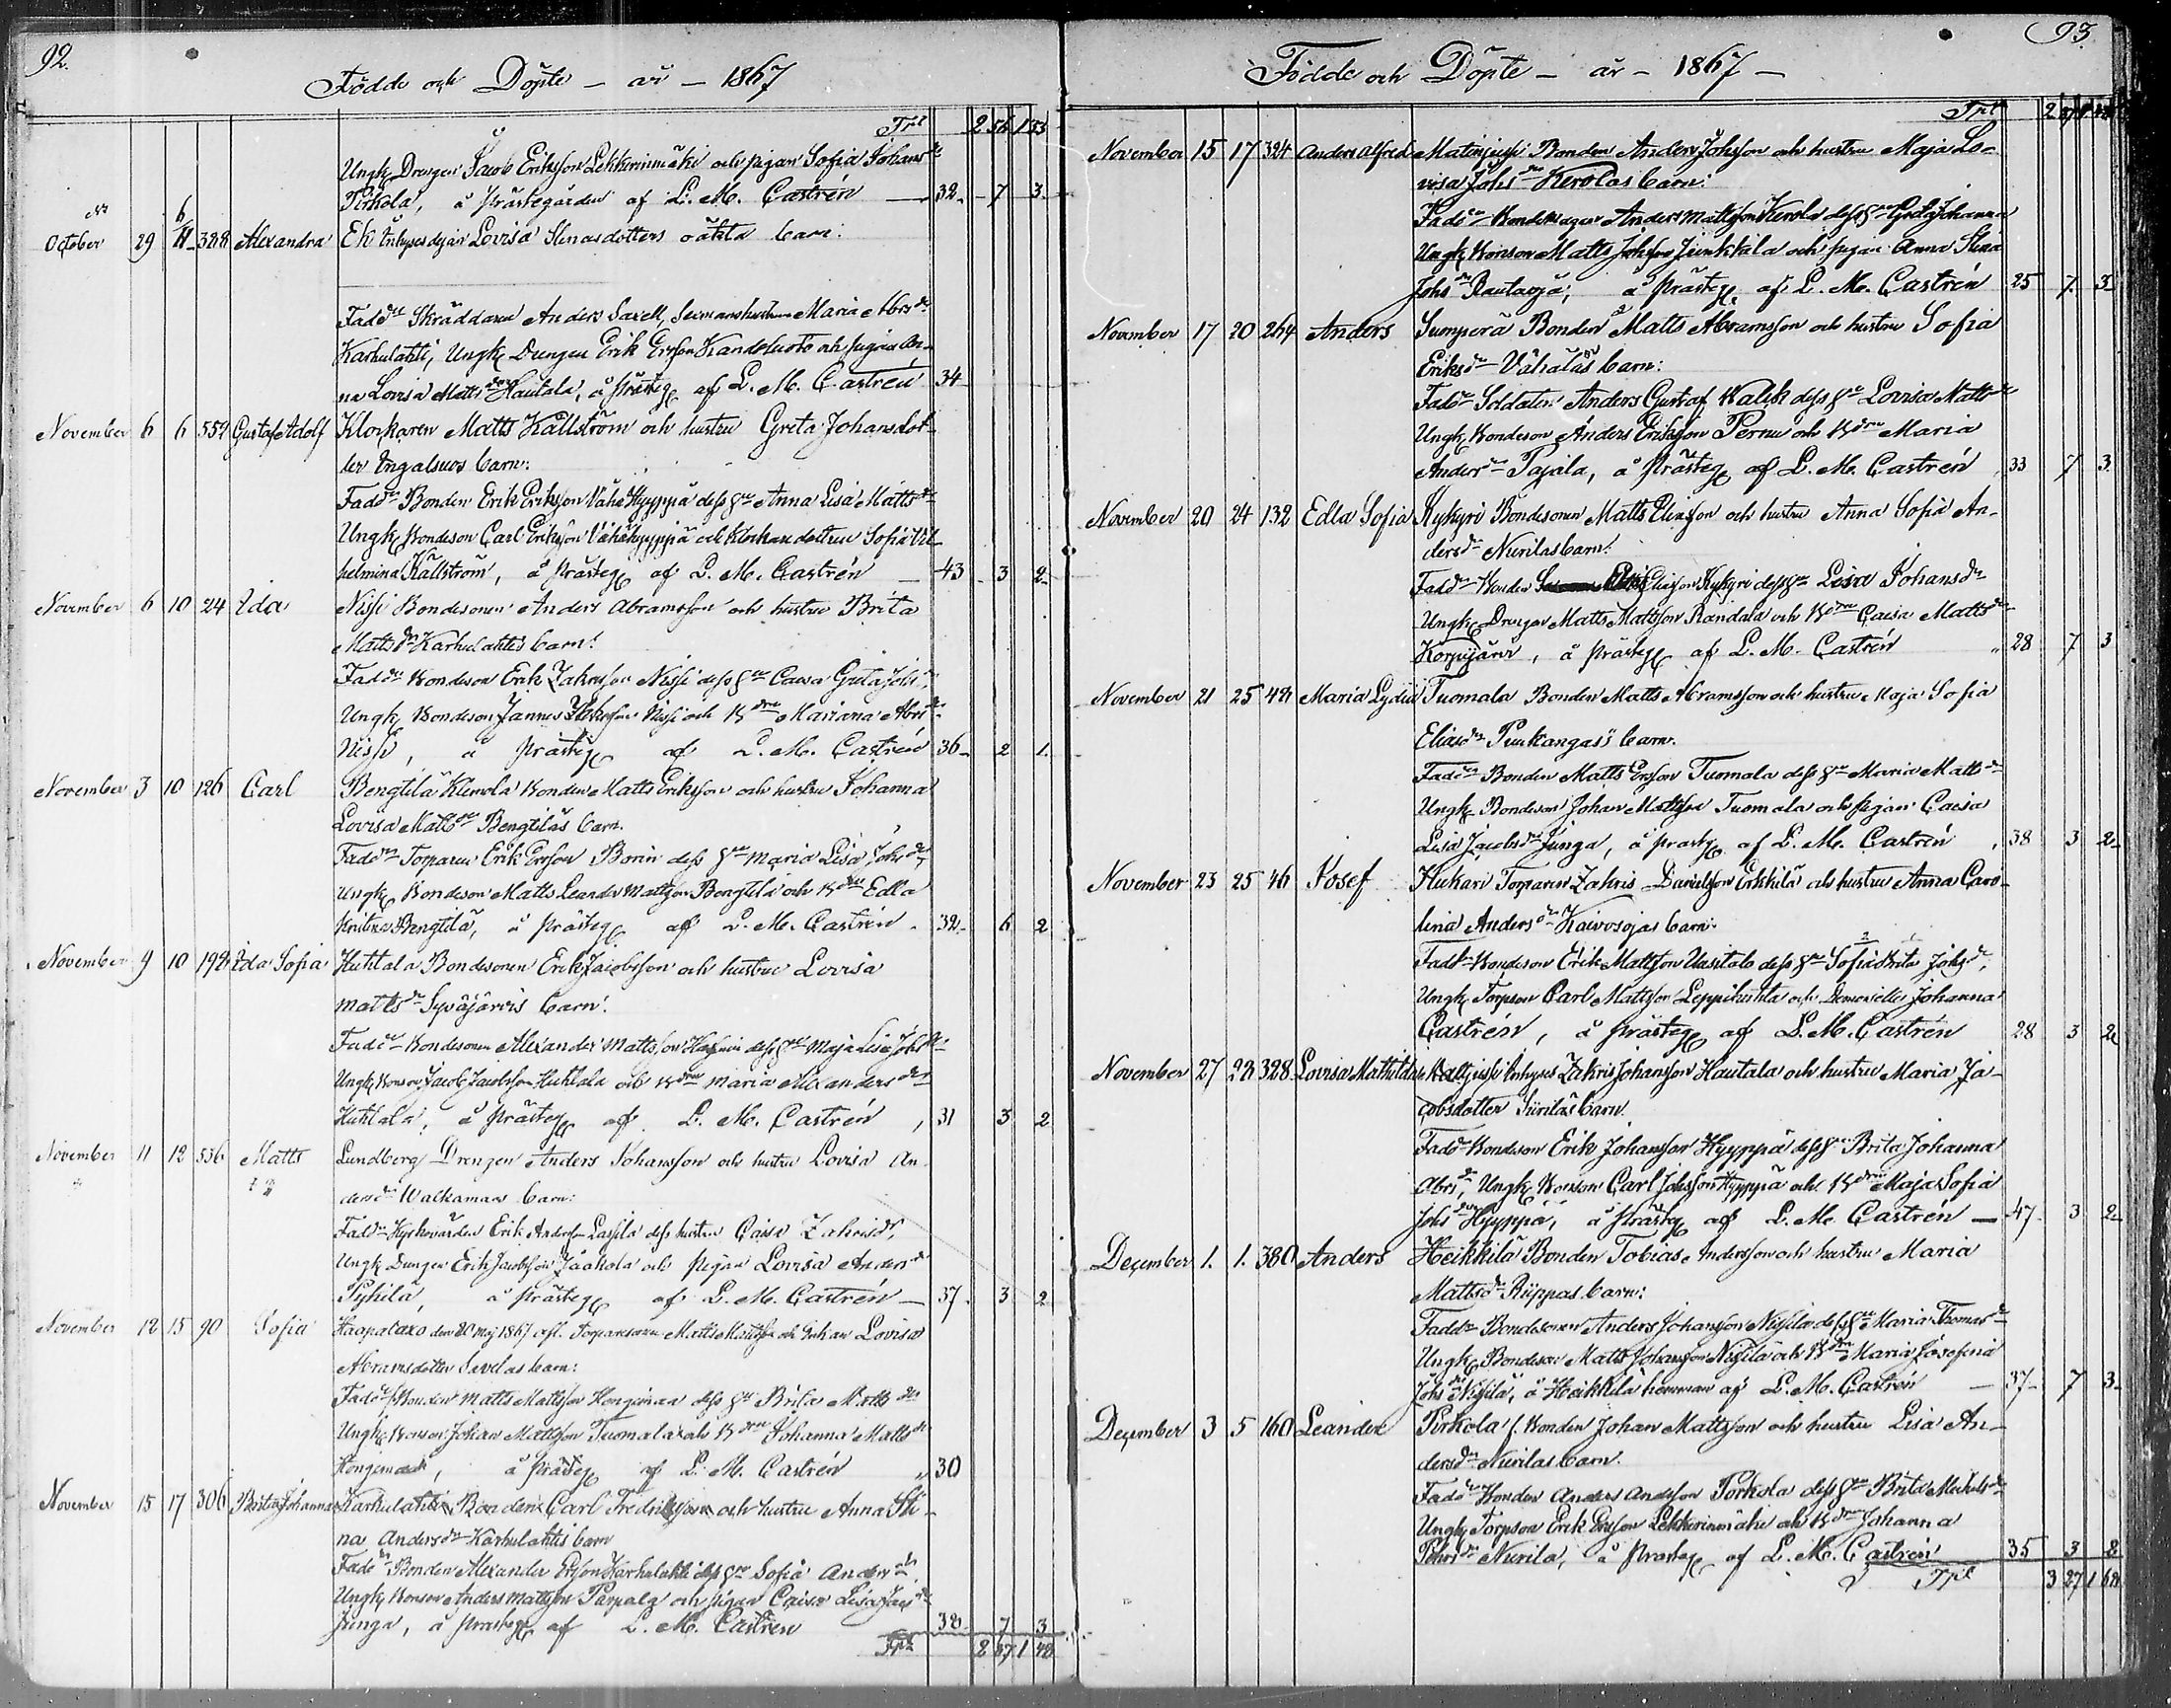 92.
Födde och Döpte – år – 1867
Trt 2 56 1 33
Ungk Drengen Jacob Eriksson Lekkerinmäki och pigan Sofia Johans dr
Pirkola, å prästegården af L. M. Castrén — 32 – 7 3
October 29 388 Alexandra Ek Inhyses pigan Lovisa Stinasdotters oäkta barn:
Fadd. Skräddaren Anders Saxell, hustrun Maria Abrs dr
Karhulahti, Ungk Drengen Erik Ersson Kandelusto och pigan An-
na Lovisa Matts dr Hautala, å prästeg af L. M. Castrén 34
November 6 6 559 Gustaf Adolf Klockaren Matts Källström och hustru Greta Johansdot-
ter Ingalsuos barn:
Fadd. Bonden Erik Eriksson Vähä Hyyppä dess hu Anna Lisa Matts dr
Ungk Bondeson Carl Eriksson Vähähyyppä och Klockaredottren Sofia Vil-
helmina Källström, å prästeg af L. M. Castrén — 43 3 2
November 6 10 24 Ida Nissi Bondesonen Anders Abramsson och hustru Brita
Matts dr Karhulahtis barn:
Fadd. Bondeson Erik Zakrisson Nissi dess hu Caisa Greta Johs dr
Ungk Bondeson Jannes Nissi och B dtr Mariana Abrs dr
Nissi, å prästeg af L. M. Castrén 36 2 1
November 3 10 126 Carl Bengtilä Klemola Bonden Matts Eriksson och hustru Johanna
Lovisa Matts dr Bengtiläs barn.
Fadd. Torparen Erik Ersson Borin dess hu Maria Lisa Johs dr,
Ungk Bondeson Matts Leander Mattsson Bengtilä och B dtr Edla
Kristina Bengtilä, å prästeg af L. M. Castrén 32 6 2
November 9 10 192 Ida Sofia Huhtala Bondesonen Erik Jacobsson och hustru Lovisa
Matts dr Syväjärvis barn:
Fadd. Bondesonen Alexander Mattsson dess hu Maja Lisa Johs dr
Ungk Bonson Jacob Jacobsson Huhtala och B dtr Maria Alexanders dr
Huhtala, å prästeg af L. M. Castrén, 31 3 2
November 11 12 536 Matts Lundberg Drengen Anders Johansson och hustru Lovisa An-
ders dr Walkamas barn:
Fadd. Kyrkovärden Erik Andersson Lassila dess hustru Caisa Zakrisdr,
Ungk Drengen Erik Jacobsson Jäåhola och Pigan Lovisa Anders dr
Pyhilä, å prästeg af L. M. Castrén — 37 3 2
November 12 15 90 Sofia Haapataxo den 20 maj 1867 afl. Torparesonen Matts Mattsson och Enkan Lovisa
Abramsdotter Levelas barn:
Fadd. Bonden Matts Mattsson Hongimaa dess hu Brita Matts dr
Ungk Bonson Johan Mattsson Tuomala och B dtr Johanna Matts dr
Hongimaa, å prästeg af L. M. Castrén 30
November 15 17 306 Brita Johanna Karhulahti Bonden Carl Fredriksson och hustru Anna Sti-
na Anders dr Karhulahtis barn
Fadd. Bonden Alexander Ersson Karhulahti dess hu Sofia Anders dr
Ungk Bonson Anders Mattsson Parpala och pigan Caisa Lisa Jacs dr
Junga, å prästeg af L. M. Castrén 38 7 3
Trt 2 87 1 48
93.
Födde och Döpte – år – 1867 –
Trt 2 87 1 48
November 15 17 324 Anders Alfred Matinjussi Bonden Anders Johsson och hustru Maja Lo-
visa Johs dr Kerolas barn:
Fadd. Bonden Anders Mattsson Kerola dess hu Greta Johanna
Ungk Bonson Matts Johsson Junkkila och pigan Anna Stina
Johs dr Rautaoja, å prästeg af L. M. Castrén 25 7 3
November 17 20 264 Anders Sumperä Bonden Matts Abramsson och hustru Sofia
Eriksd Vähäläs barn:
Fadd. Soldaten Anders Gustaf Walek dess hu Lovisa Matts dr
Ungk Bondeson Anders Eriksson Pernu och B dtr Maria
Anders dr Pajala, å prästeg af L. M. Castrén 33 7 3
November 20 24 132 Edla Sofia Kykyri Bondesonen Matts Eliasson och hustru Anna Sofia An-
ders dr Nurilas barn:
Fadd. Bonden Eliasson Kykyri dess hu Lisa Johans dr
Ungk Drengen Matts Mattsson Randala och B dtr Caisa Matts dr
Korpijärvi, å prästeg af L. M. Castrén 28 7 3
November 21 25 42 Maria Lydia Tuomala Bonden Matts Abramsson och hustru Maja Sofia
Elias dr Punkangas's barn.
Fadd. Bonden Matts Ersson Tuomala dess hu Maria Matts dr
Ungk Bondeson Johan Mattsson Tuomala och pigan Caisa
Lisa Jacobs dr Junga, å prästeg af L. M. Castrén 38 3 2
November 23 25 46 Josef Hukari Torparen Zakris Danielsson Erkkilä och hustru Anna Caro-
lina Anders dr Kaivosojas barn:
Fadd. Bondeson Erik Mattsson Uusitalo dess hu Sofia Brita Johs dr,
Ungk Torpson Carl Mattsson Leppihuhta och Demoiselle Johanna
Castrén, å prästeg af L. M. Castrén 28 3 2
November 27 28 328 Lovisa Mathilda Inhyses Zakris Johansson Hautala och hustru Maria Ja-
cobsdotter Siiriläs barn.
Fadd. Bondeson Erik Johansson Hyyppä dess hu Brita Johanna
Abrs dr, Ungk Bonson Carl Johsson Hyyppä och B dtr Maja Sofia
Johs dr Hyyppä, å prästeg af L. M. Castrén — 47 3 2
December 1. 1. 380 Anders Heikkilä Bonden Tobias Andersson och hustru Maria
Mattsd Riippas barn:
Fadd. Bondesonen Anders Johansson Niskala dess hu Maria Thomas dr
Ungk Bondeson Matts Johansson Niskala och B dtr Maria Josefina
Johs dr, å Heikkilä hemman af L. M. Castrén — 37 7 3
December 3 5 160 Leander Porkola f. Bonden Johan Mattsson och hustru Lisa An-
ders dr Nurilas barn.
Fadd. Bonden Anders Andersson Porkola dess hu Brita Michels dr
Ungk Torpson Erik Ersson Lekkerinmäki och B dtr Johanna
Johs dr Nurila, å prästeg af L. M. Castrén 35 3 2
Trt 3 27 1 68